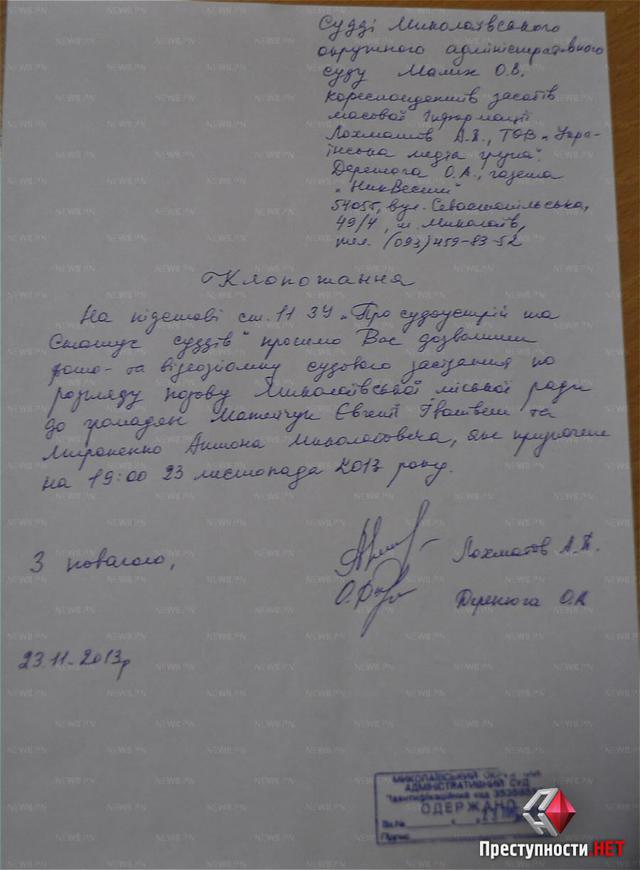 Судді Миколаївського
окружного адміністративного
суду Малих О.В.
кореспондентів засобів
масової інформації
Лохматов А.П., ТОВ „Укра-
їнська медіа група"
Деренюга О.А., газета
„НикВести"
54055, вул. Севастопільська,
49/4, м. Миколаїв,
тел. (093) 459-83-52
Клопотання
На підставі ст. 11 ЗУ „Про судоустрій та
Статус суддів" просимо Вас дозволити
фото- та відеозйомку судового засідання по
розгляду позову Миколаївської міської ради
до громадян Матейчук Євгенії Іванівни та
Мироненко Антона Миколайовича, яке призначене
на 19:00 23 листопада 2013 року.
З повагою,
Лохматов А.П.
Деренюга О.А
23.11.2013р
МИКОЛАЇВСЬКИЙ
АДМІНІСТРАТИВНИЙ СУД
Ідентифікаційний код
ОДЕРЖАНО
Вх.№
Підпис
Преступности.НЕТ